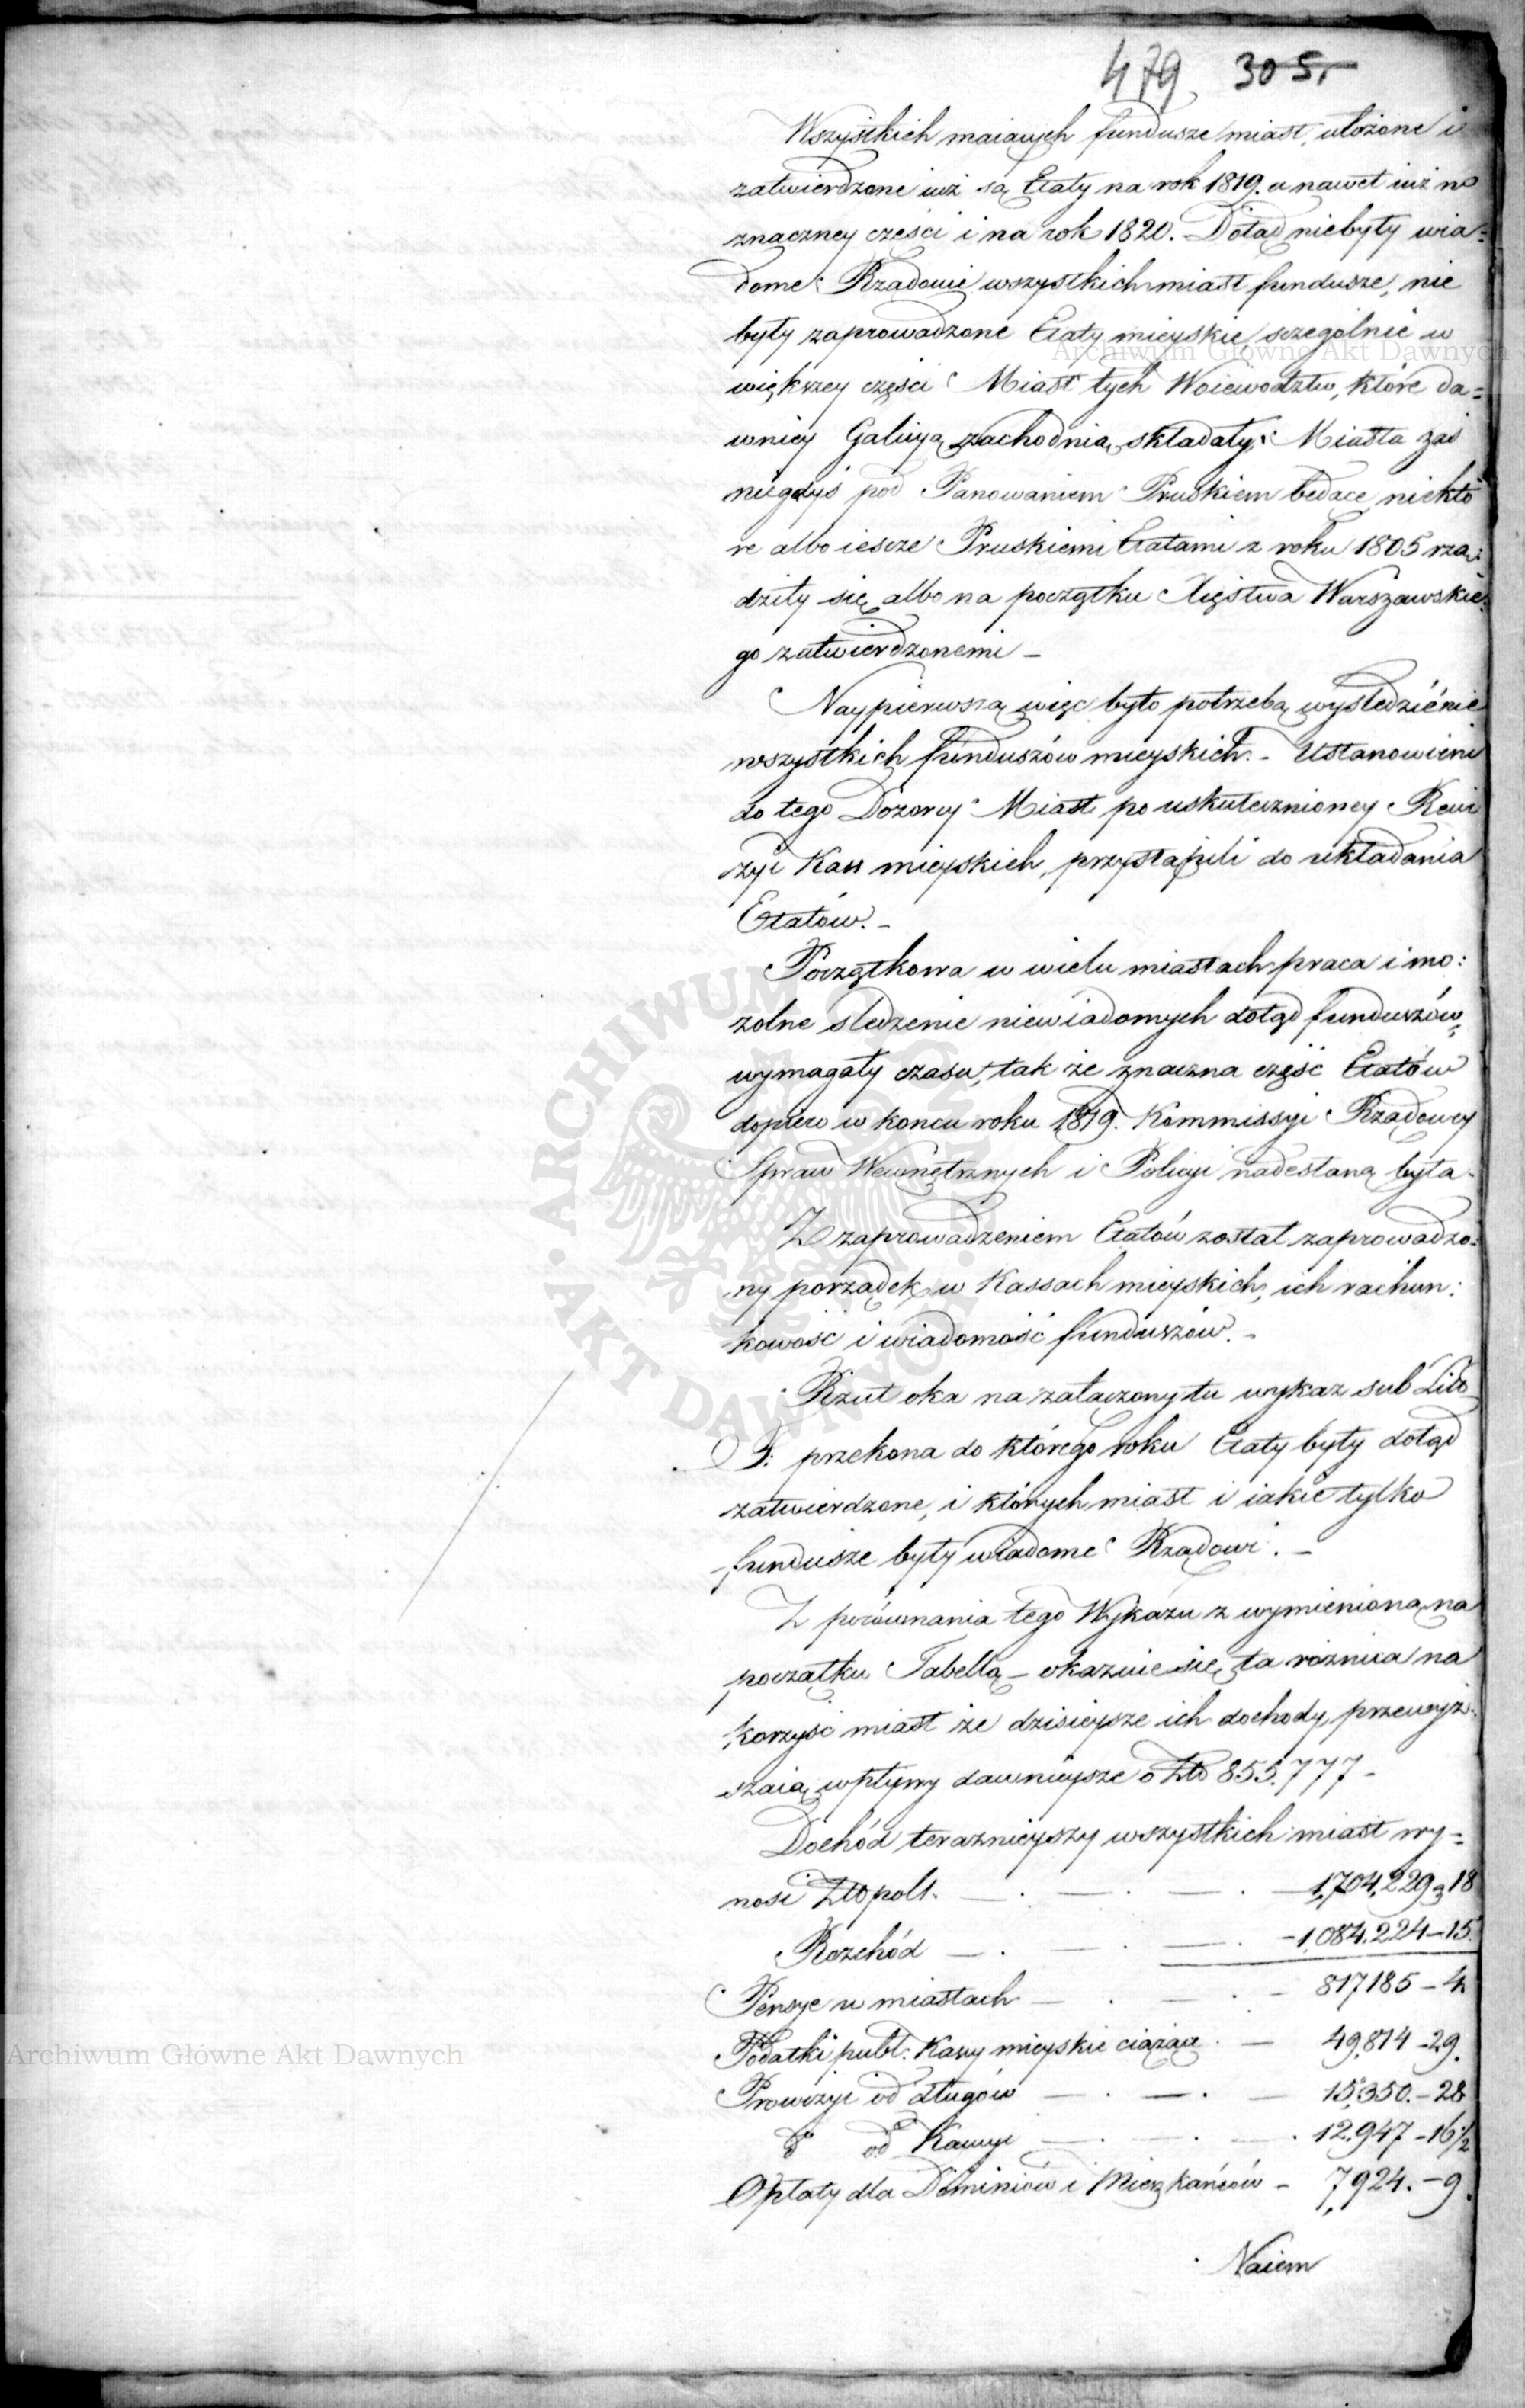 479 305.
Wszystkich maiących fundusze miast, ułożone i
zatwierdzone iuż są Etaty na rok 1819. a nawet iuż w
znaczney części i na rok 1820. Dotąd niebyły wia=
dome Rządowi wszystkich miast fundusze, nie
były zaprowadzone Etaty mieyskie, szczególnie w
większey części Miast tych Woiewodztw, które da=
wniey Galicyą zachodnią składały; Miasta zaś
niegdyś pod Panowaniem Pruskiem będące, niektó
re albo iescze Pruskiemi Etatami z roku 1805 rzą=
dziły się, albo na początku Xięstwa Warszawskie=
go zatwierdzonemi –
Naypierwszą więc było potrzebą wyśledzienie
wszystkich funduszów mieyskich. – Ustanowieni
do tego Dozorcy Miast po uskutecznioney Rewi
zyi Kass mieyskich, przystąpili do układania
Etatów. –
Początkowa w wielu miastach praca i mo:
zolne sledzenie niewiadomych dotąd funduszów,
wymagały czasu, tak że znaczna część Etatów
dopiero w końcu roku 1819. Kommissyi Rządowey
Spraw Wewnętrznych i Policyi nadesłaną była –
Z zaprowadzeniem Etatów został zaprowadzo:
ny porządek w Kassach mieyskich, ich rachun:
kowość i wiadomość funduszów. –
Rzut oka na załączony tu wykaz sub Litt
F: przekona do którego roku Etaty były dotąd
zatwierdzone, i których miast i iakie tylko
fundusze były wiadome Rządowi. –
Z porównania tego Wykazu z wymienioną na
początku Tabellą – okazuie się ta różnica na
korzyść miast że dzisieysze ich dochody, przewyż:
szaią wpływy dawnieysze o Złt 855.777 –
Dochód teraznieyszy wszystkich miast wy=
nosi Złt polt. — . — . — . — 1,704,229 – 18
Rozchód — . — . — . – 1,084.224 – 15.
Pensye w miastach — . — . – 817185 – 4
Podatki publ: Kassy mieyskie ciążące . — 49,814 – 29.
Prowizyi od długów — . — . — 15,350. – 28
do od Kaucyi — . — . — . 12.947 – 16½
Opłaty dla Dominiów i Mieszkańców – 7,924. – 9.
Naiem
Archiwum Główne Akt Dawnych
Archiwum Główne Akt Dawnych
ARCHIWUM GŁÓWNE AKT DAWNYCH